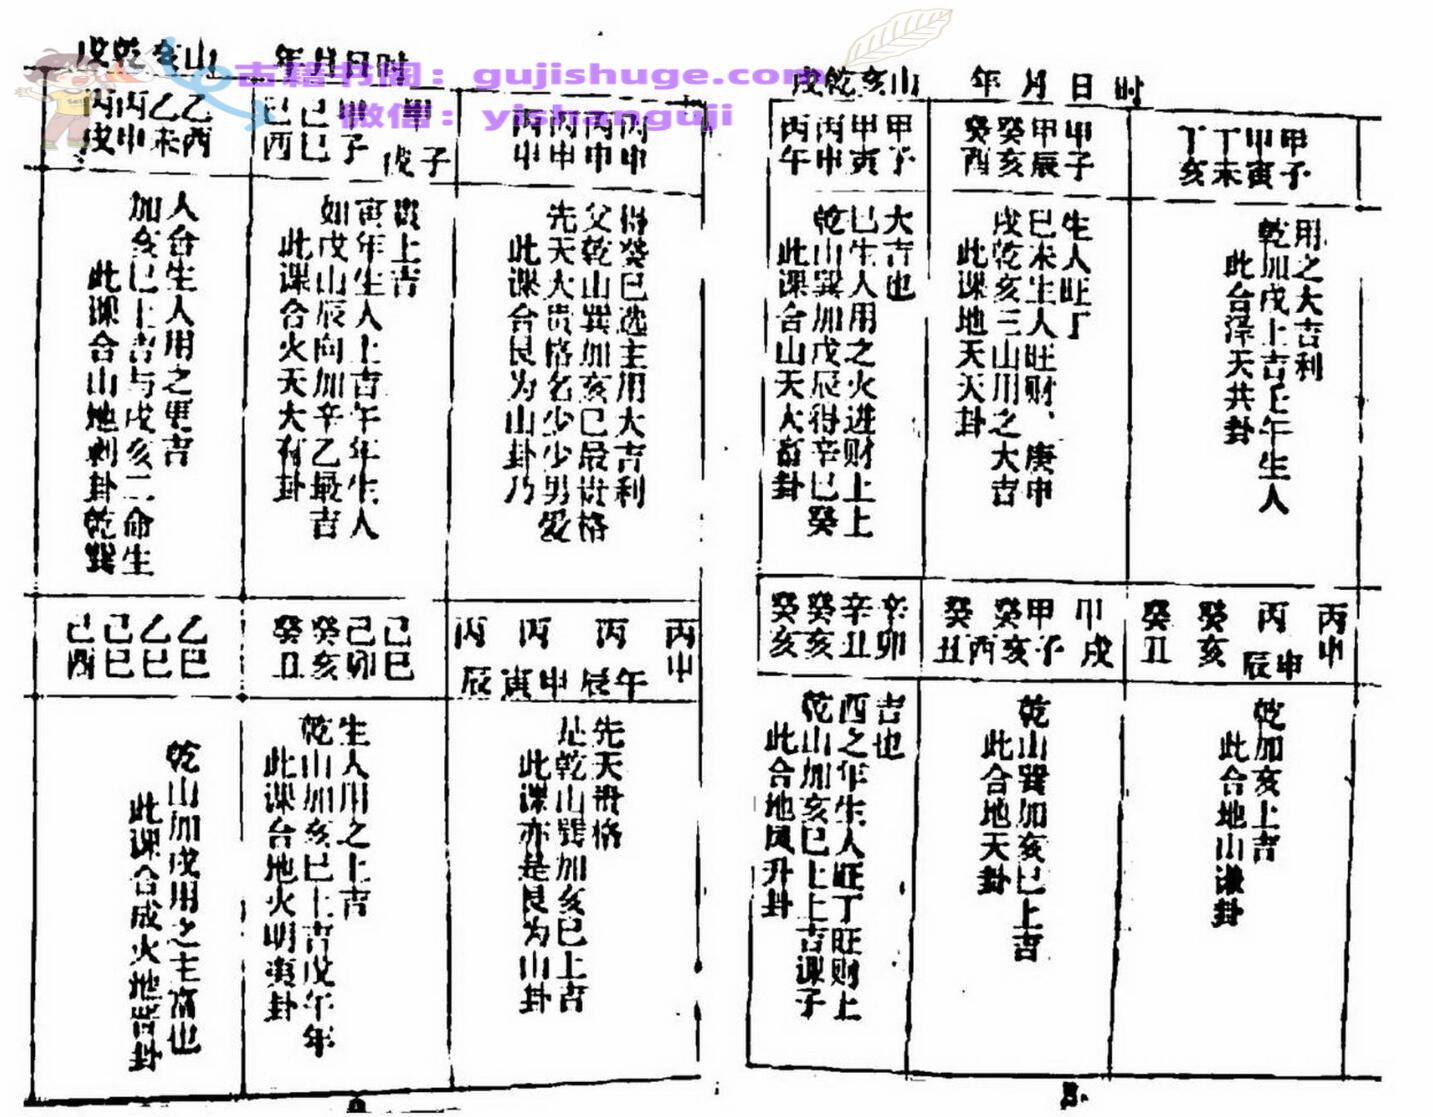 戌乾亥山 年月日时
丙戌
丙申
乙未
乙酉
此课合山地剥卦乾巽
加亥巳上吉与戌亥二命生
人合生人用之更吉
己酉
己巳
甲子
甲 戌子
此课合火天大有卦
如戌山辰向加辛乙最吉
寅年生人上吉午年生人
贵上吉
丙申
丙申
丙申
丙申
此课合艮为山卦乃
先天大贵格名少少男爱
父乾山巽加亥巳最贵格
得癸巳选主用大吉利
己酉
己巳
乙巳
乙巳
此课合成火地晋卦
乾山加戌用之主富也
癸丑
癸亥
己卯
己巳
此课合地火明夷卦
乾山加亥巳上吉戊午年
生人用之上吉
丙 丙 丙 丙申
辰 寅 申 辰 午
此课亦是艮为山卦
是乾山巽加亥巳上吉
先天贵格
戌乾亥山 年月日时
丙午
丙申
甲寅
甲子
此课合山天大畜卦
乾山巽加戊辰得辛巳癸
巳生人用之火进财上上
大吉也
癸酉
癸亥
甲辰
甲子
此课地天天卦
戌乾亥三山用之大吉
巳未生人旺财、庚申
生人旺丁
丁亥
丁未
甲寅
甲子
此合泽天共卦
乾加戌上吉壬午生人
用之大吉利
癸亥
癸亥
辛丑
辛卯
此合地风升卦
乾山加亥巳上上吉课子
酉之年生人旺丁旺财上
吉也
癸丑
癸酉亥
甲子
甲戌
此合地天卦
乾山巽加亥巳上吉
癸丑
癸亥
丙辰
丙申 申
此合地山谦卦
乾加亥上吉
古籍书阁：gujishuge.com
微信：yishanguji